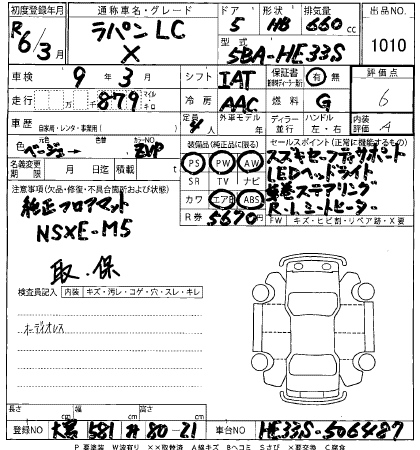 初度登録年月 通称車名・グレード ドア 形状 排気量 出品NO.
R6/3 ラパンLC X 5 HB 660cc 1010
型式 5BA-HE33S
車検 9年3月 シフト IAT 保証書 有 無 評価点 6
走行 879 キロ 冷房 AAC 燃料 G 内装評価 A
車歴 自家用・レンタ・事業用( ) 定員 4 外車モデル年 ディーラー 並行 ハンドル 左・右
色 元色 ベージュ カラーNO ZVP 装備品(純正品に限る) セールスポイント(正常に機能するもの)
名義変更期限 月 日迄 積載 t PS PW AW
スズキセーフティサポート
注意事項(欠品・修復・不具合箇所および状態) SR TV ナビ
LEDヘッドライト
純正フロアマット カワ エアB ABS
本巻ステアリング
NSXE-M5 R券 5670
R.Lシートヒーター
FW キズ・ヒビ割・リペア跡・X要
取.保
検査員記入 内装 キズ・汚レ・コゲ・穴・スレ・キレ
オーディオレス
長さ cm 幅 cm 高さ cm
登録NO 581 80-21 車台NO HE33S-506487
P 要塗装 W 波有り ×× 取替済 A 線キズ Bヘコミ Sさび X要交換 C腐食